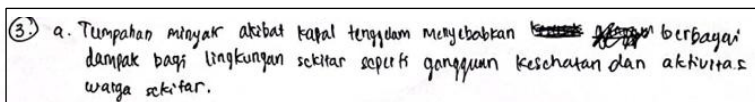 3. a. Tumpahan minyak akibat kapal tenggelam menyebabkan berbagai
dampak bagi lingkungan sekitar seperti gangguan kesehatan dan aktivitas
warga sekitar.